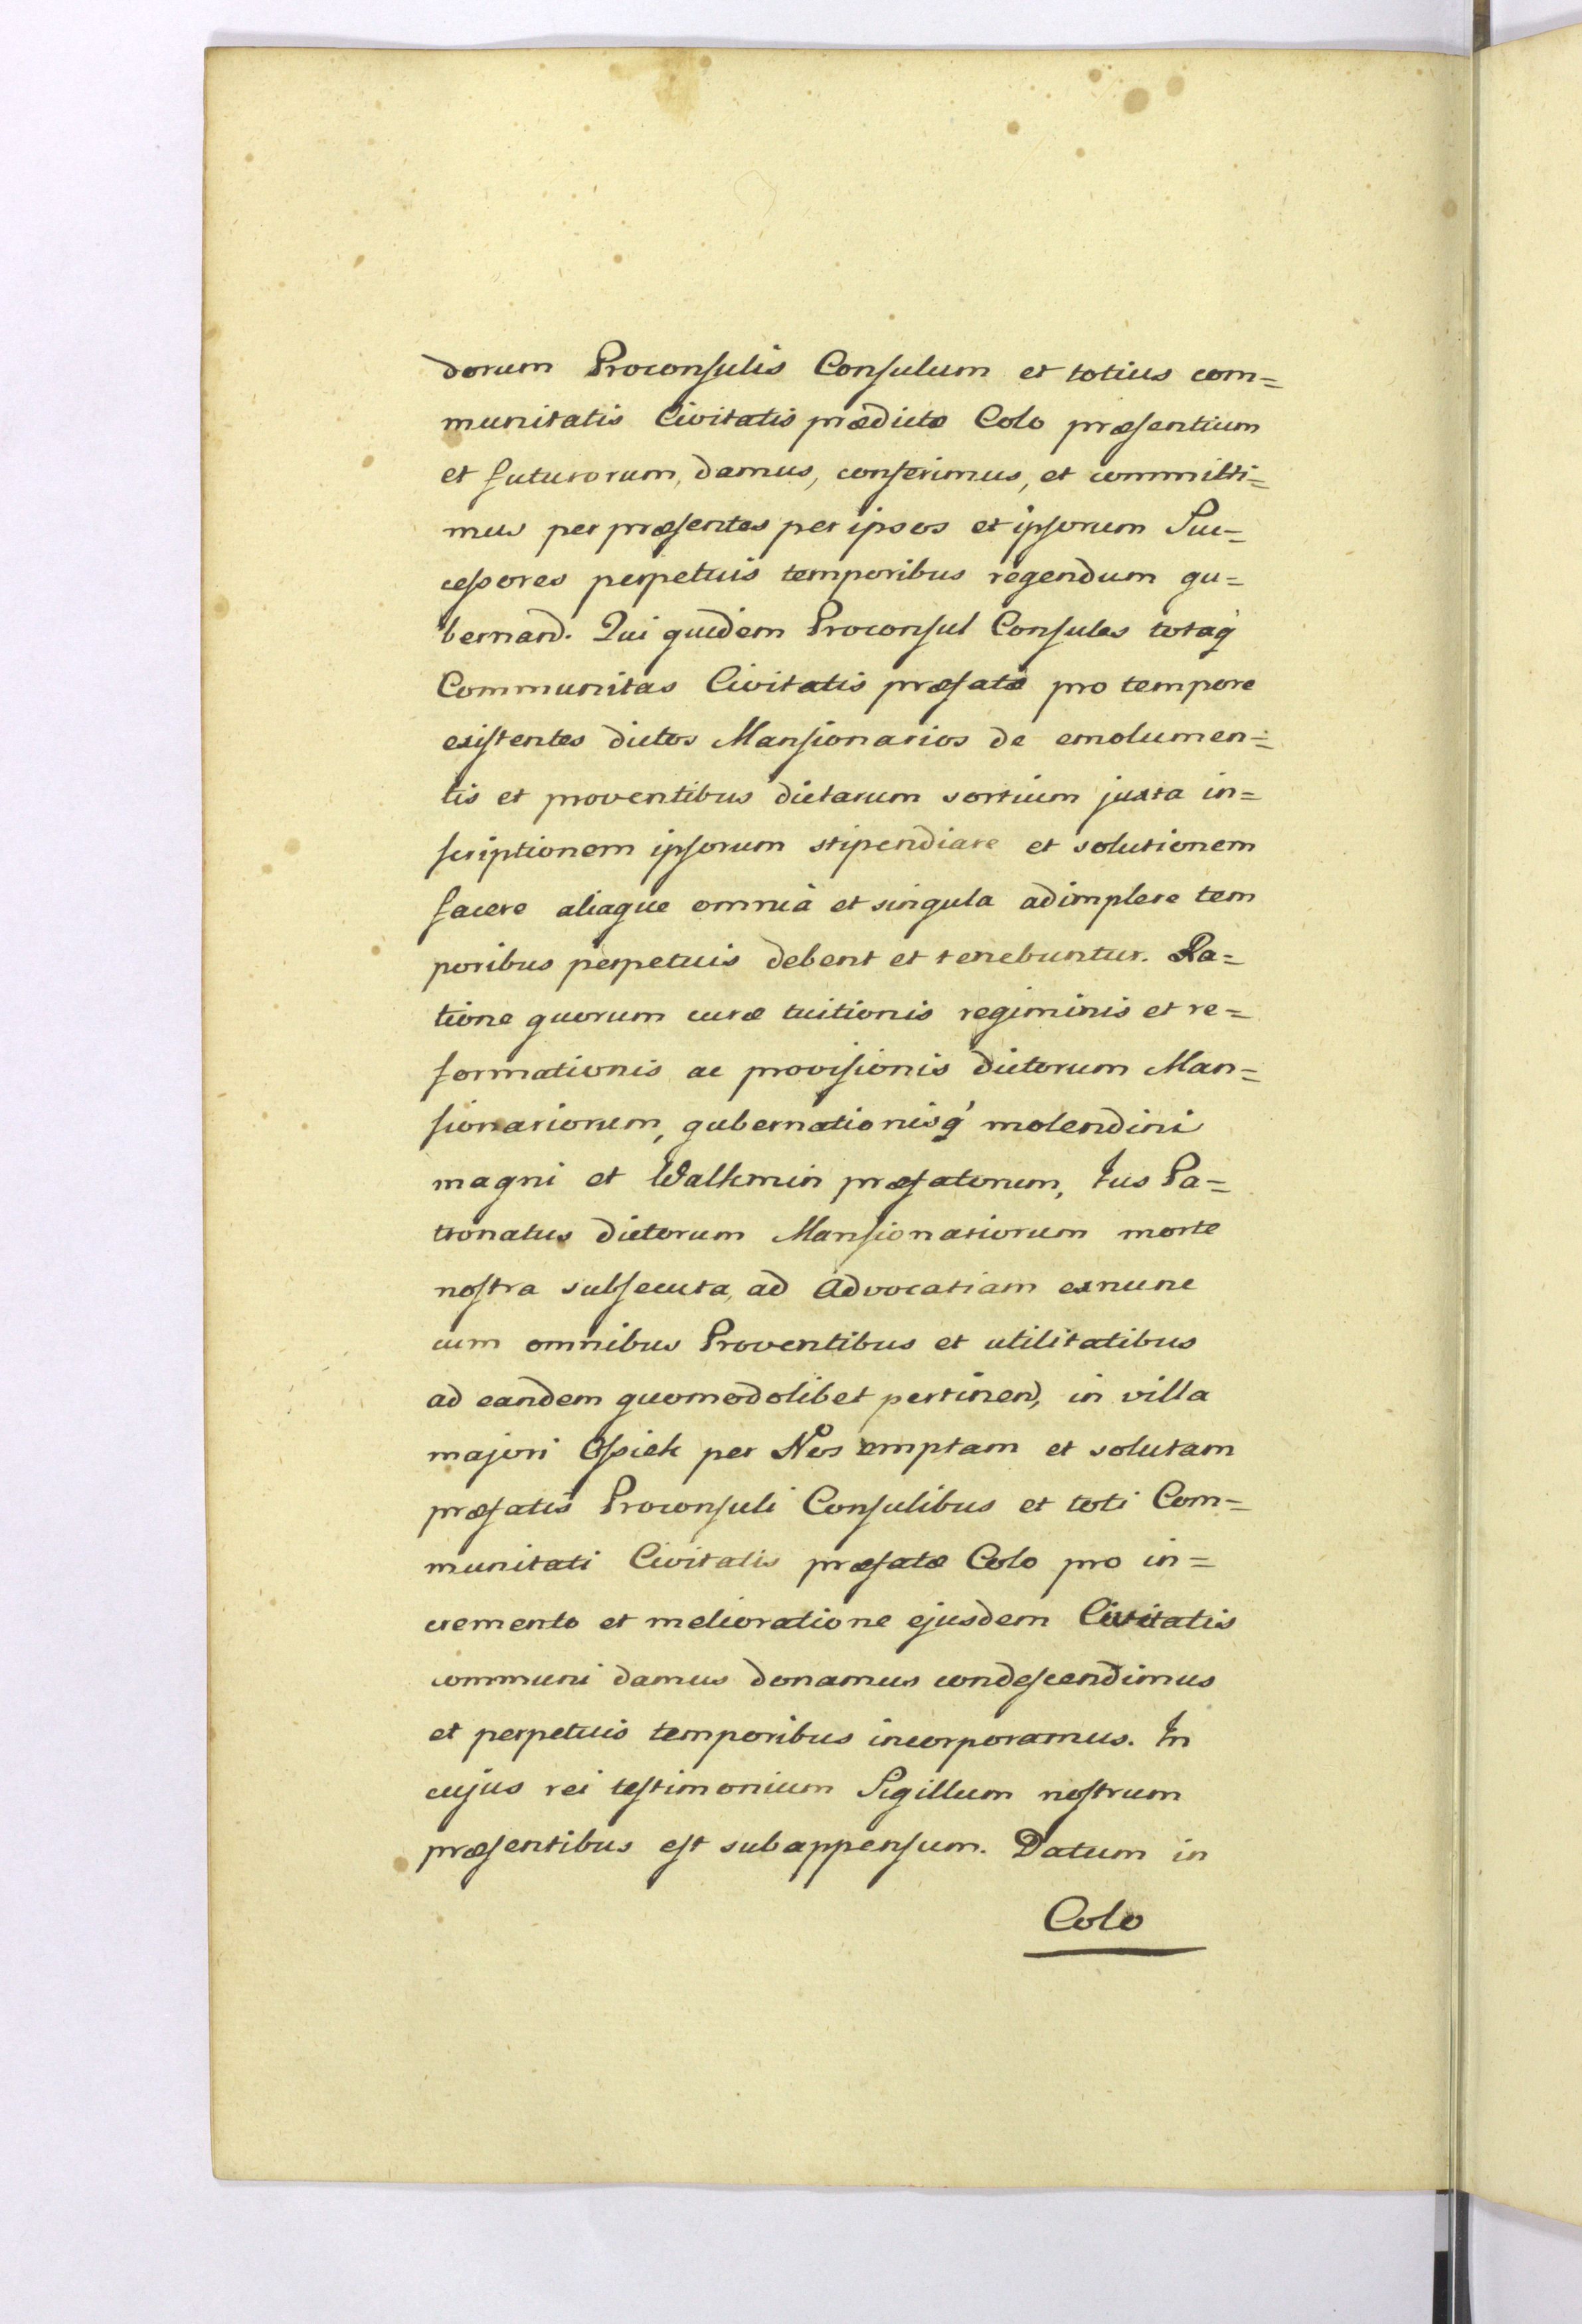 dorum Proconsulis Consulum et totius com=
munitatis Civitatis prædictæ Colo præsentium
et futurorum, damus, conferimus, et committi=
mus per præsentes per ipsos et ipsorum Suc=
cessores perpetuis temporibus regendum gu=
bernand. Qui quidem Proconsul Consules totaq́
Communitas Civitatis præfatæ pro tempore
existentes dictos Mansionarios de emolumen=
tis et proventibus dictarum sortium juxta in=
scriptionem ipsorum stipendiare et solutionem
facere aliaque omnia et singula adimplere tem
poribus perpetuis debent et tenebuntur. Ra=
tione quorum curæ tuitionis regiminis et re=
formationis ac provisionis dictorum Man=
sionariorum, gubernationisq́ molendini
magni et Walkmin præfatorum, Jus Pa=
tronatus dictorum Mansionariorum morte
nostra subsecuta, ad Advocatiam exnunc
cum omnibus Proventibus et utilitatibus
ad eandem quomodolibet pertinen, in villa
majori Ossiek per Nos emptam et solutam
præfatis Proconsuli Consulibus et toti Com=
munitati Civitatis præfatæ Colo pro in=
cremento et melioratione ejusdem Civitatis
communi damus donamus condescendimus
et perpetuis temporibus incorporamus. In
cujus rei testimonium Sigillum nostrum
præsentibus est subappensum. Datum in
Colo